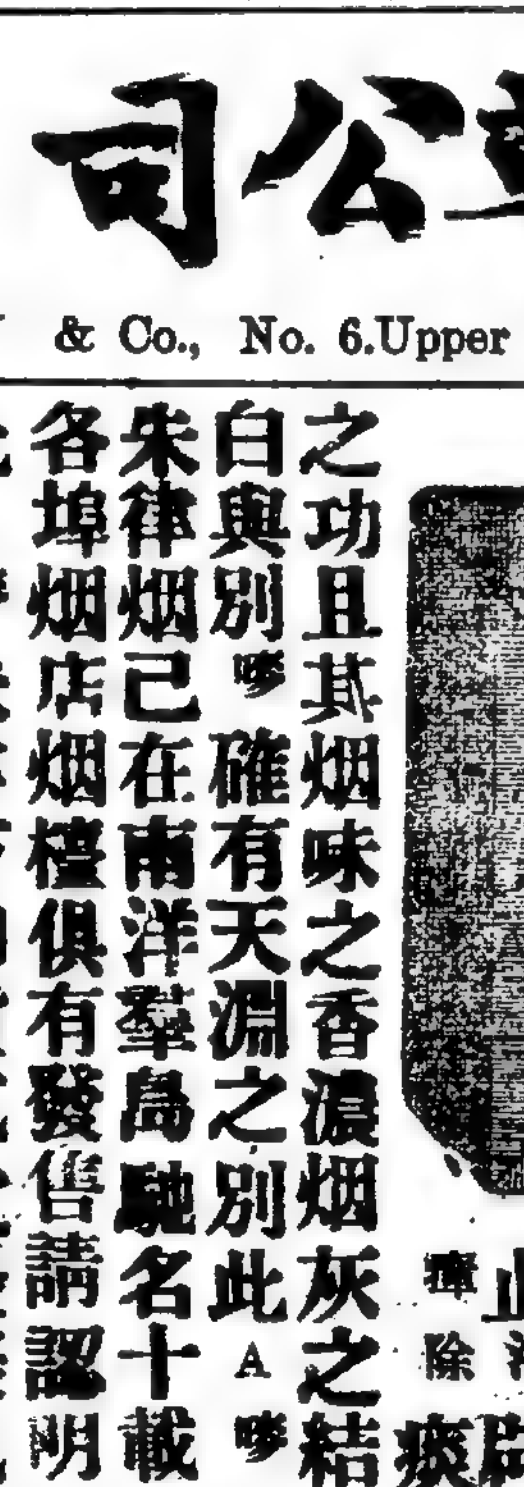 公司
& Co., No. 6. Upper
除
之功且其烟味之香濃烟灰之結
白與別嘜確有天淵之別此A嘜
朱律烟己在南洋羣島馳名十載
各埠烟店烟檯俱有發售請認明